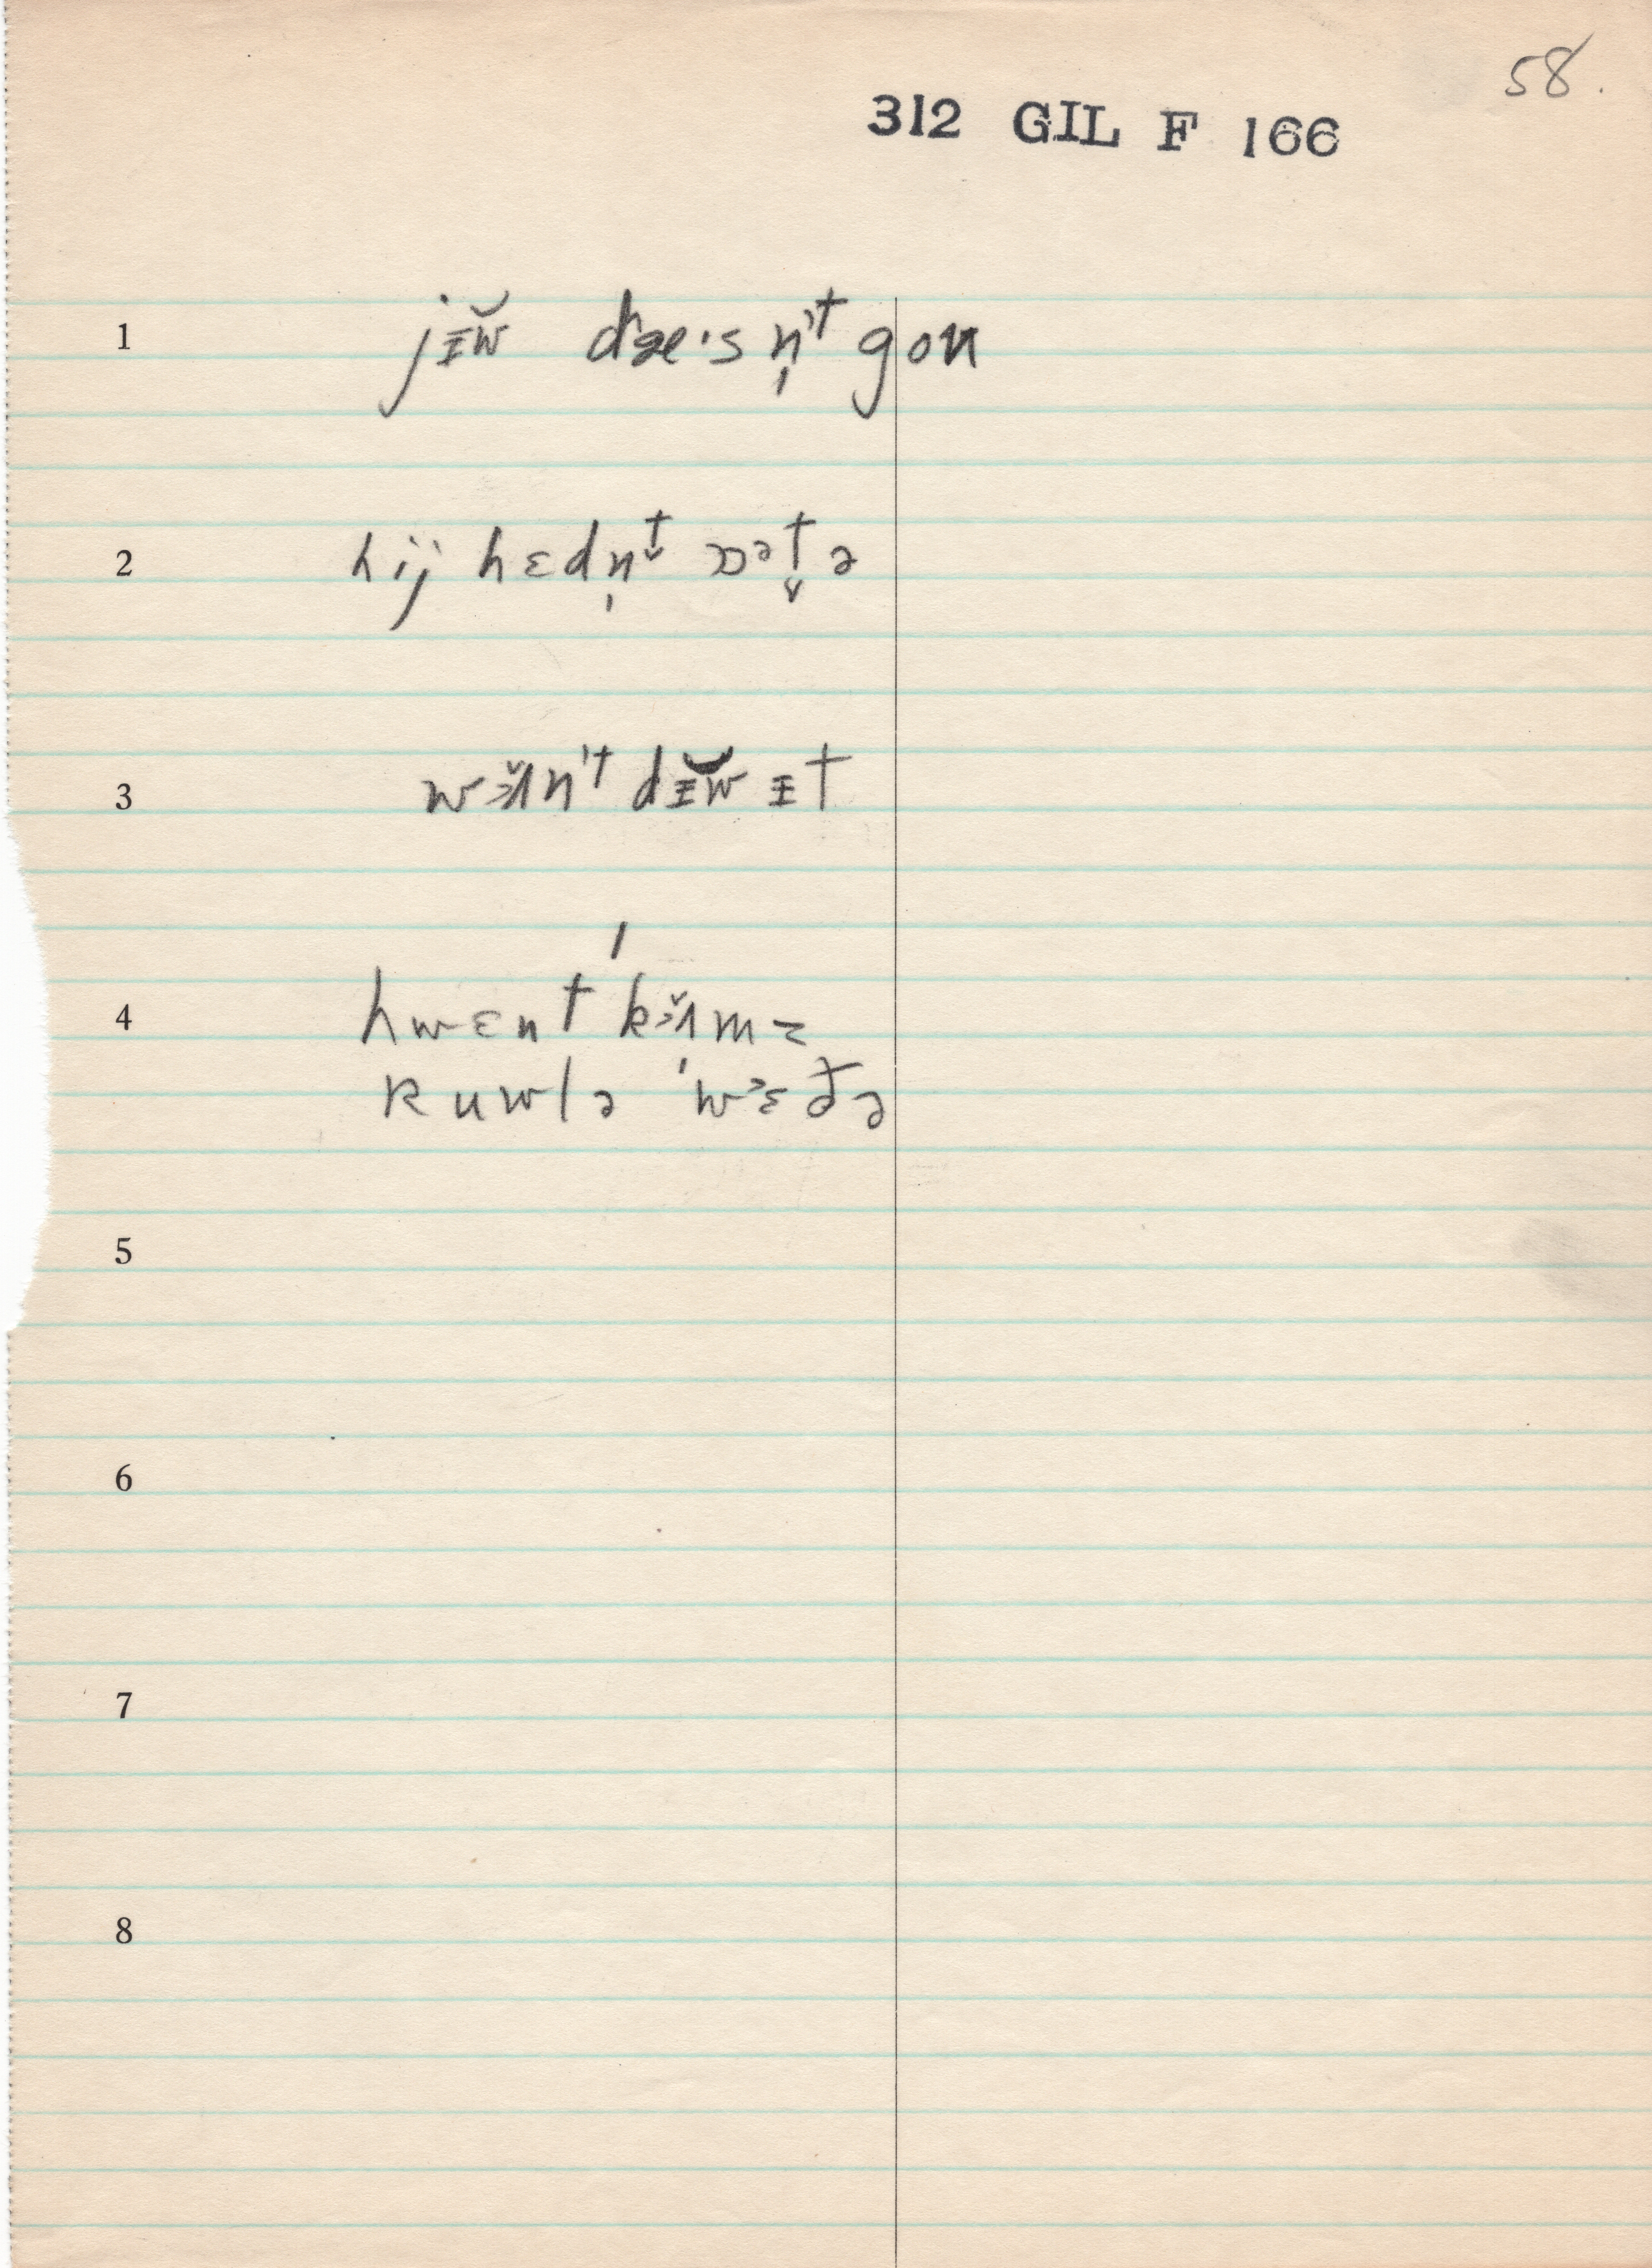 58.
312 GIL F 166
1 jᵻw̆ dæ·sn̩ᵗ gou
2 hij hɛdn̩ᵗ̬ ɒᵊt̬ə
3 wɜ̌ʌnᵗ dᵻw̆ ᵻt
4 hwɛnt ˈkɜ̌ʌmz
kuwlə ˈwᵊɛðə
5
6
7
8